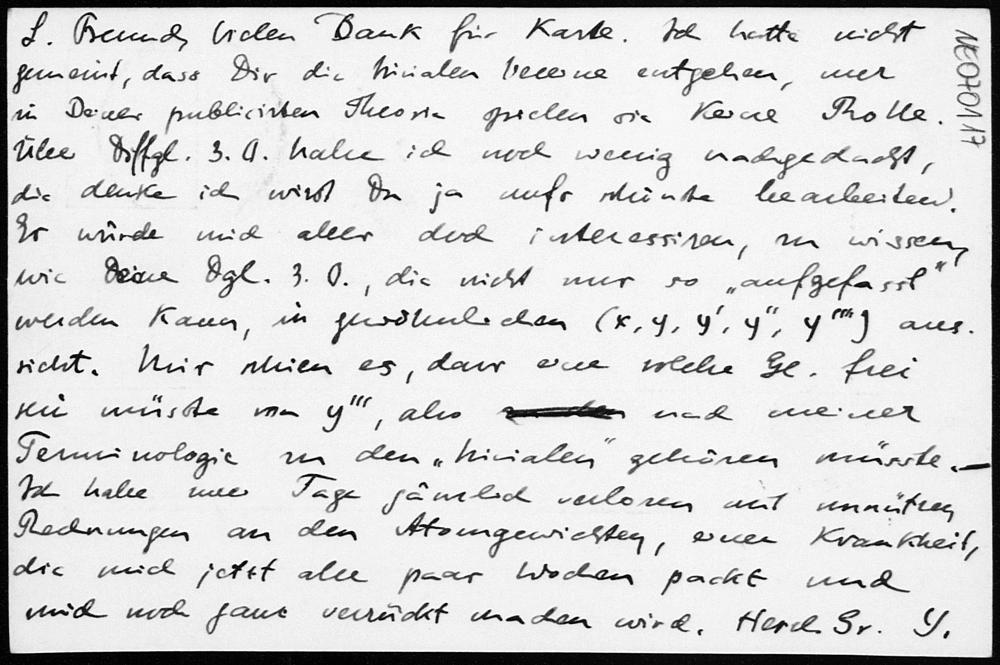 L. Freund, vielen Dank für Karte. Ich hatte nicht
gemeint, dass Dir die trivialen Vereine entgehen, nur
in Deiner publicirten Theorie spielen sie keine Rolle.
Über Diffgl. 3. O. habe ich noch wenig nachgedacht,
die denke ich wirst Du ja aufs schönste bearbeiten.
Es würde mich aber doch interessiren, zu wissen,
wie Deine Dgl. 3. O., die nicht nur so „aufgefasst"
werden kann, in gewöhnlichen (x, y, y', y'', y''') aus-
sieht. Mir schien es, dass eine solche Gl. frei
sein müsste von y''', also nach meiner
Terminologie zu den „trivialen" gehören müsste. —
Ich habe neue Tage jämmerlich verloren mit unnützen
Rechnungen an den Atomgewichten, einer Krankheit,
die mich jetzt alle paar Wochen packt und
mich noch ganz verrückt machen wird. Herzl. Gr. Y.
NEO70117